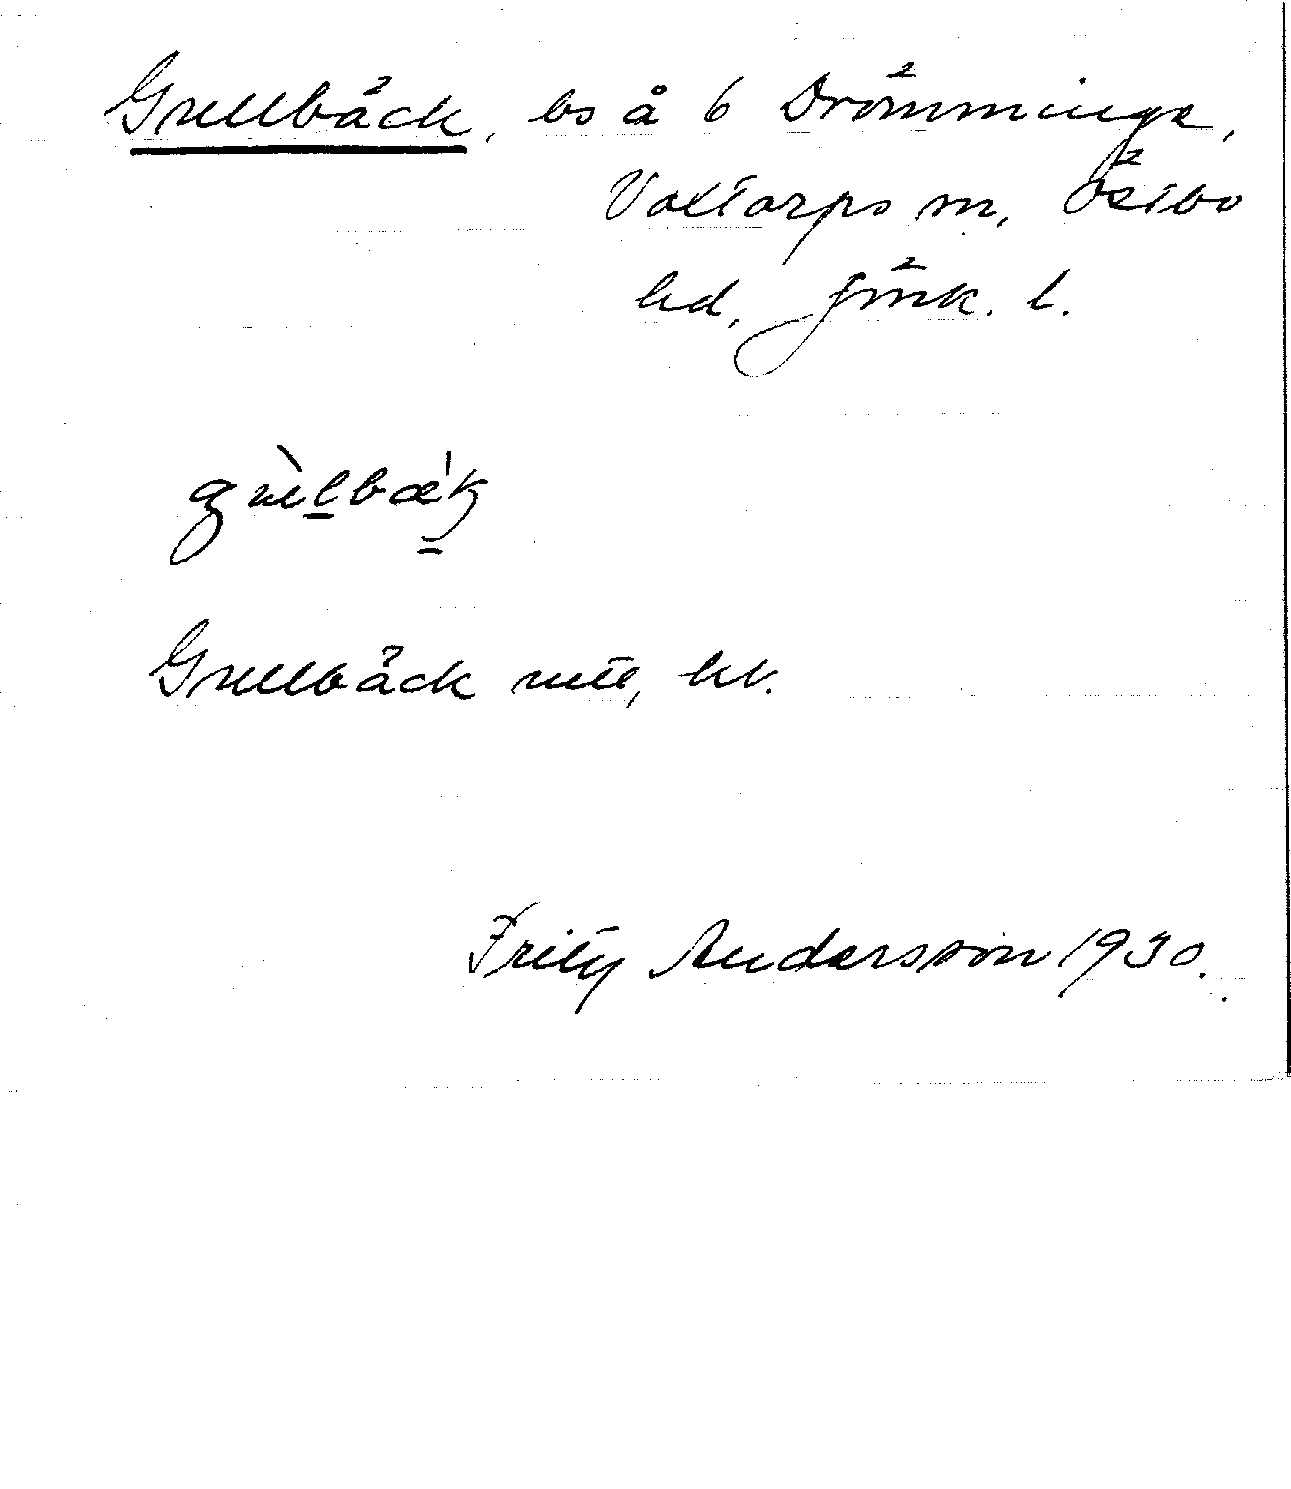 Grellbäck, bs å 6 Drömminge,
Voxtorps sn, Östbo
hd, Jönk. l.
grèlbæ'k
Grellbäck
Fritz Andersson 1930.